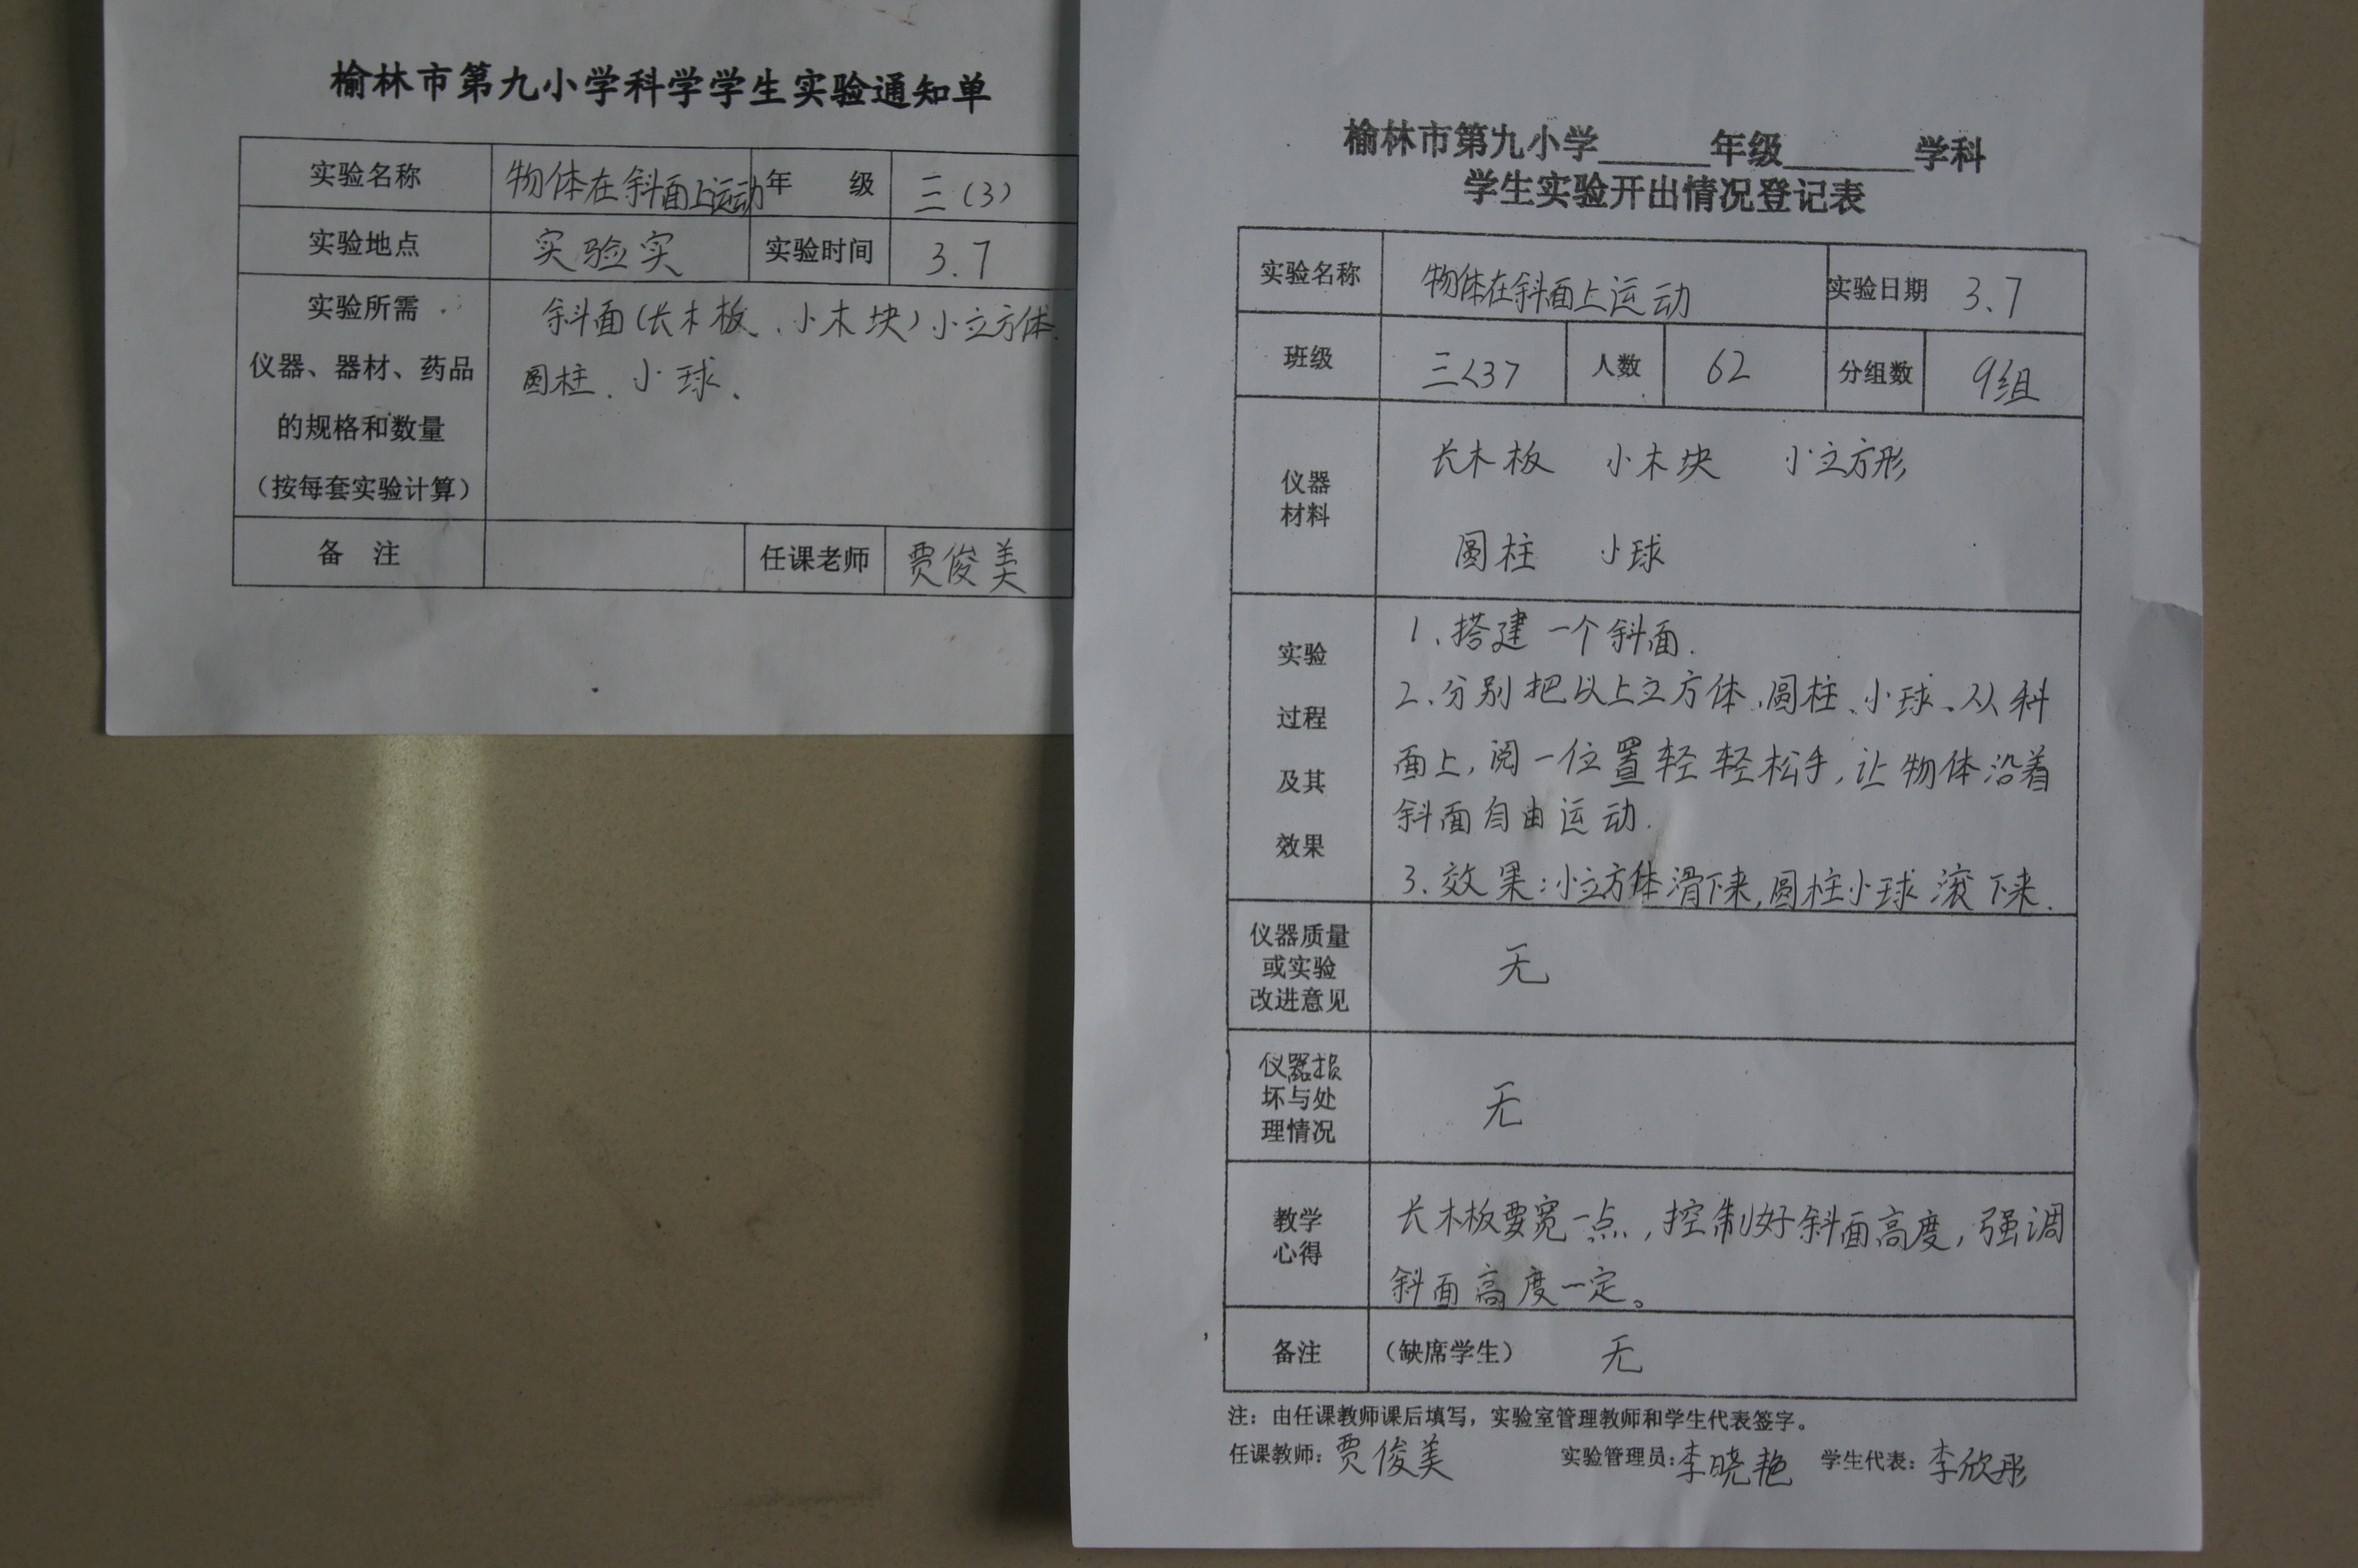 榆林市第九小学科学学生实验通知单
实验名称 物体在斜面上运动 年 级 三(3)
实验地点 实验实 实验时间 3.7
实验所需
仪器、器材、药品
的规格和数量
(按每套实验计算)
斜面(长木板、小木块)小立方体.
圆柱、小球、
备 注 任课老师 贾俊美
榆林市第九小学______年级______学科
学生实验开出情况登记表
实验名称 物体在斜面上运动 实验日期 3.7
班级 三<37 人数 62 分组数 9组
仪器
材料
长木板 小木块 小立方形
圆柱 小球
实验
过程
及其
效果
1、搭建一个斜面.
2、分别把以上立方体、圆柱、小球、从科
面上,阅一位置轻轻松手,让物体沿着
斜面自由运动.
3.效果:小立方体滑下来,圆柱小球滚下来.
仪器质量
或实验
改进意见
无
仪器损
坏与处
理情况
无
教学
心得
长木板要宽一点,控制好斜面高度,强调
斜面高度一定。
备注 (缺席学生) 无
注:由任课教师课后填写,实验室管理教师和学生代表签字。
任课教师:贾俊美 实验管理员:李晓艳 学生代表:李欣彤